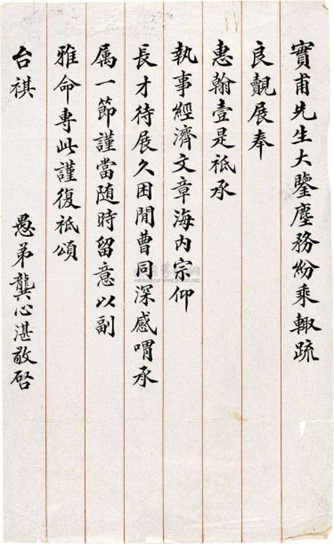 實甫先生大鑒塵務紛乘輙疏
良覿展奉
惠翰壹是祗承
執事經濟文章海內宗仰
長才待展久困閒曹同深感喟承
属一節謹當随時留意以副
雅命專此謹復祗頌
台祺
愚弟龔心湛敬啓